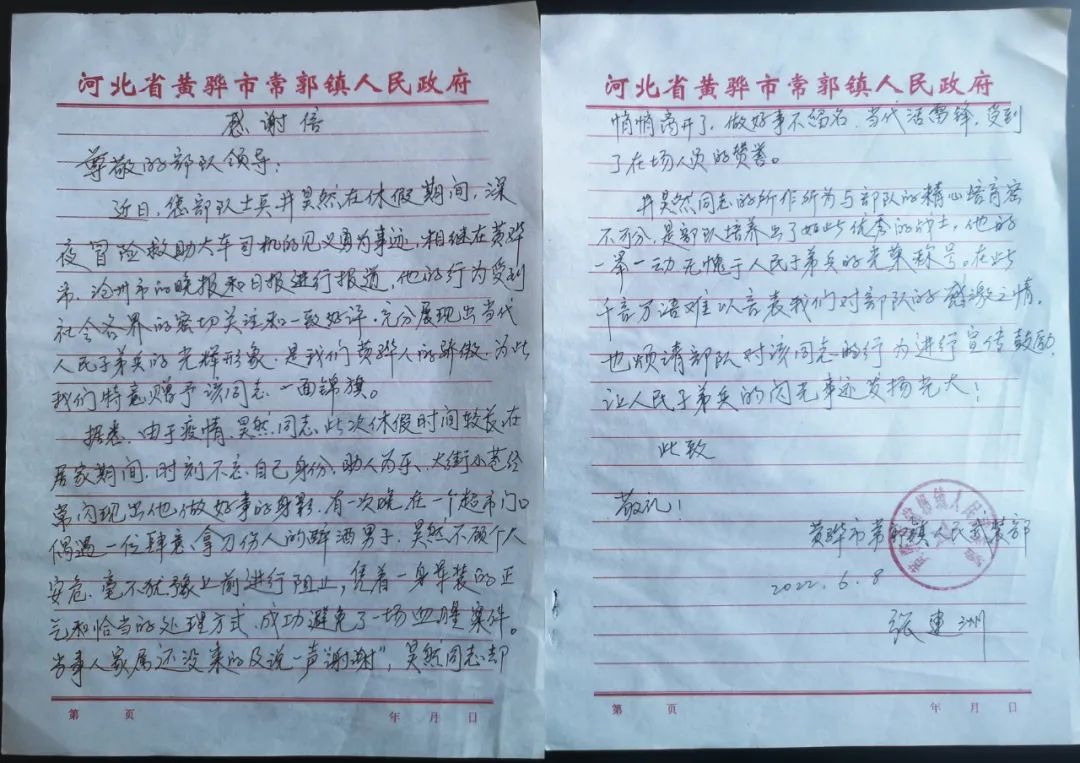 河北省黄骅市常郭镇人民政府
感谢信
尊敬的部队领导：
近日，您部队士兵井昊然在休假期间，深
夜冒险救助大车司机的见义勇为事迹，相继在黄骅
市、沧州市的晚报和日报进行报道，他的行为受到
社会各界的密切关注和一致好评，充分展现出当代
人民子弟兵的光辉形象，是我们黄骅人的骄傲，为此
我们特意赠予该同志一面锦旗。
据悉，由于疫情，昊然同志此次休假时间较长，在
居家期间，时刻不忘自己身份，助人为乐，大街小巷经
常闪现出他做好事的身影，有一次晚，在一个超市门口
偶遇一位肆意拿刀伤人的醉酒男子，昊然不顾个人
安危，毫不犹豫上前进行阻止，凭着一身军装的正
气和恰当的处理方式，成功避免了一场血腥案件。
当事人家属还没来的及说一声“谢谢”，昊然同志却
第 页 年 月 日
河北省黄骅市常郭镇人民政府
悄悄离开了，做好事不留名，当代活雷锋，受到
了在场人员的赞誉。
井昊然同志的所作所为与部队的精心培育密
不可分，是部队培养出了如此优秀的战士，他的
一举一动无愧于人民子弟兵的光荣称号。在此
千言万语难以言表我们对部队的感激之情，
也烦请部队对该同志的行为进行宣传鼓励，
让人民子弟兵的闪光事迹发扬光大！
此致
敬礼！
黄骅市常郭镇人民武装部
2022.6.8
张建洲
第 页 年 月 日